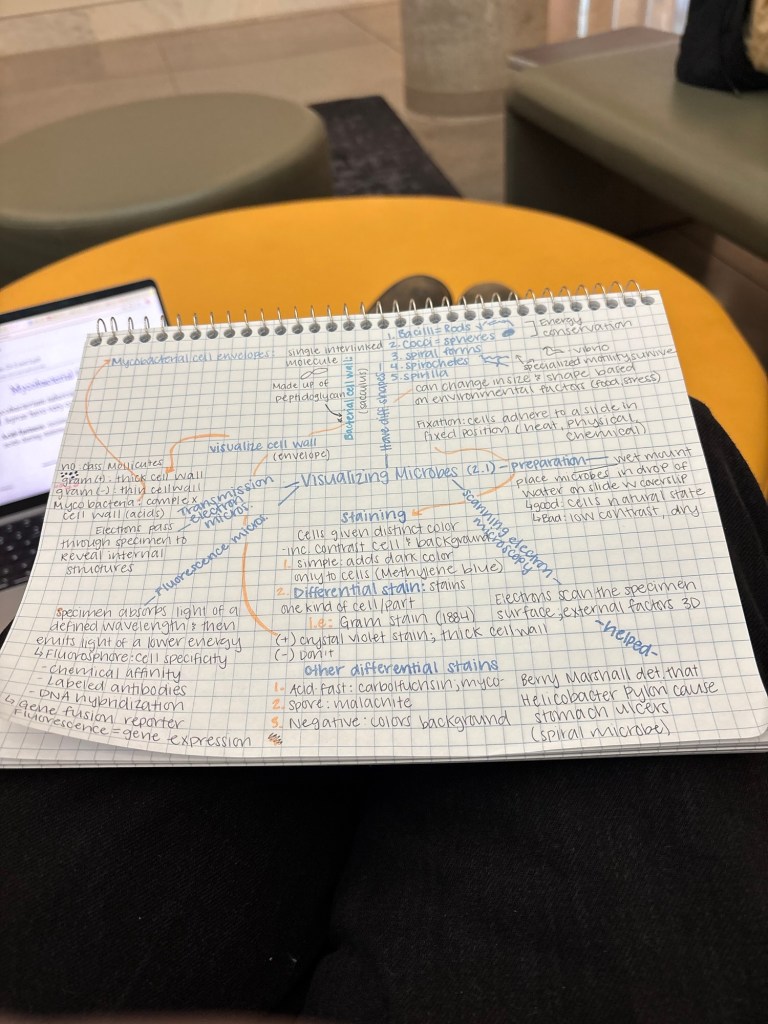 Mycobacterial cell envelopes:
single interlinked
molecule
Made up of
peptidoglycan
Bacterial cell wall:
(sacculus)
Have diff. shapes
1. Bacilli = Rods
2. Cocci = spheres
3. spiral forms
4. spirochetes
5. spirilla
Energy
conservation
vibrio
specialized motility, survive
can change in size & shape based
on environmental factors (food, stress)
Fixation: cells adhere to a slide in
fixed position (heat, physical,
chemical)
visualize cell wall
(envelope)
no class Mollicutes
gram (+): thick cell wall
gram (-) thin cell wall
Mycobacteria: complex
cell wall (acids)
Visualizing Microbes (2.1)
preparation
wet mount
place microbes in drop of
water on slide w coverslip
↳good: cells natural state
↳Bad: low contrast, dry
Transmission
electron
micros.
Electrons pass
through specimen to
reveal internal
structures
Fluorescence micros.
specimen absorbs light of a
defined wavelength & then
emits light of a lower energy
↳Fluorosphore: cell specificity
- Chemical affinity
- Labeled antibodies
- DNA hybridization
↳gene fusion reporter
Fluorescence = gene expression
staining
Cells given distinct color
-inc. contrast cell & background
1. simple: adds dark color
only to cells (Methylene blue)
2. Differential stain: stains
one kind of cell/part
i.e: Gram stain (1884)
(+) crystal violet stain; thick cell wall
(-) Don't
other differential stains
1. Acid-fast: carbolfuchsin; myco-
2. spore: malachite
3. Negative: colors background
scanning electron
microscopy
Electrons scan the specimen
surface, external factors 3D
-helped-
Berry Marshall det. that
Helicobacter Pylori cause
stomach ulcers
(spiral microbe)